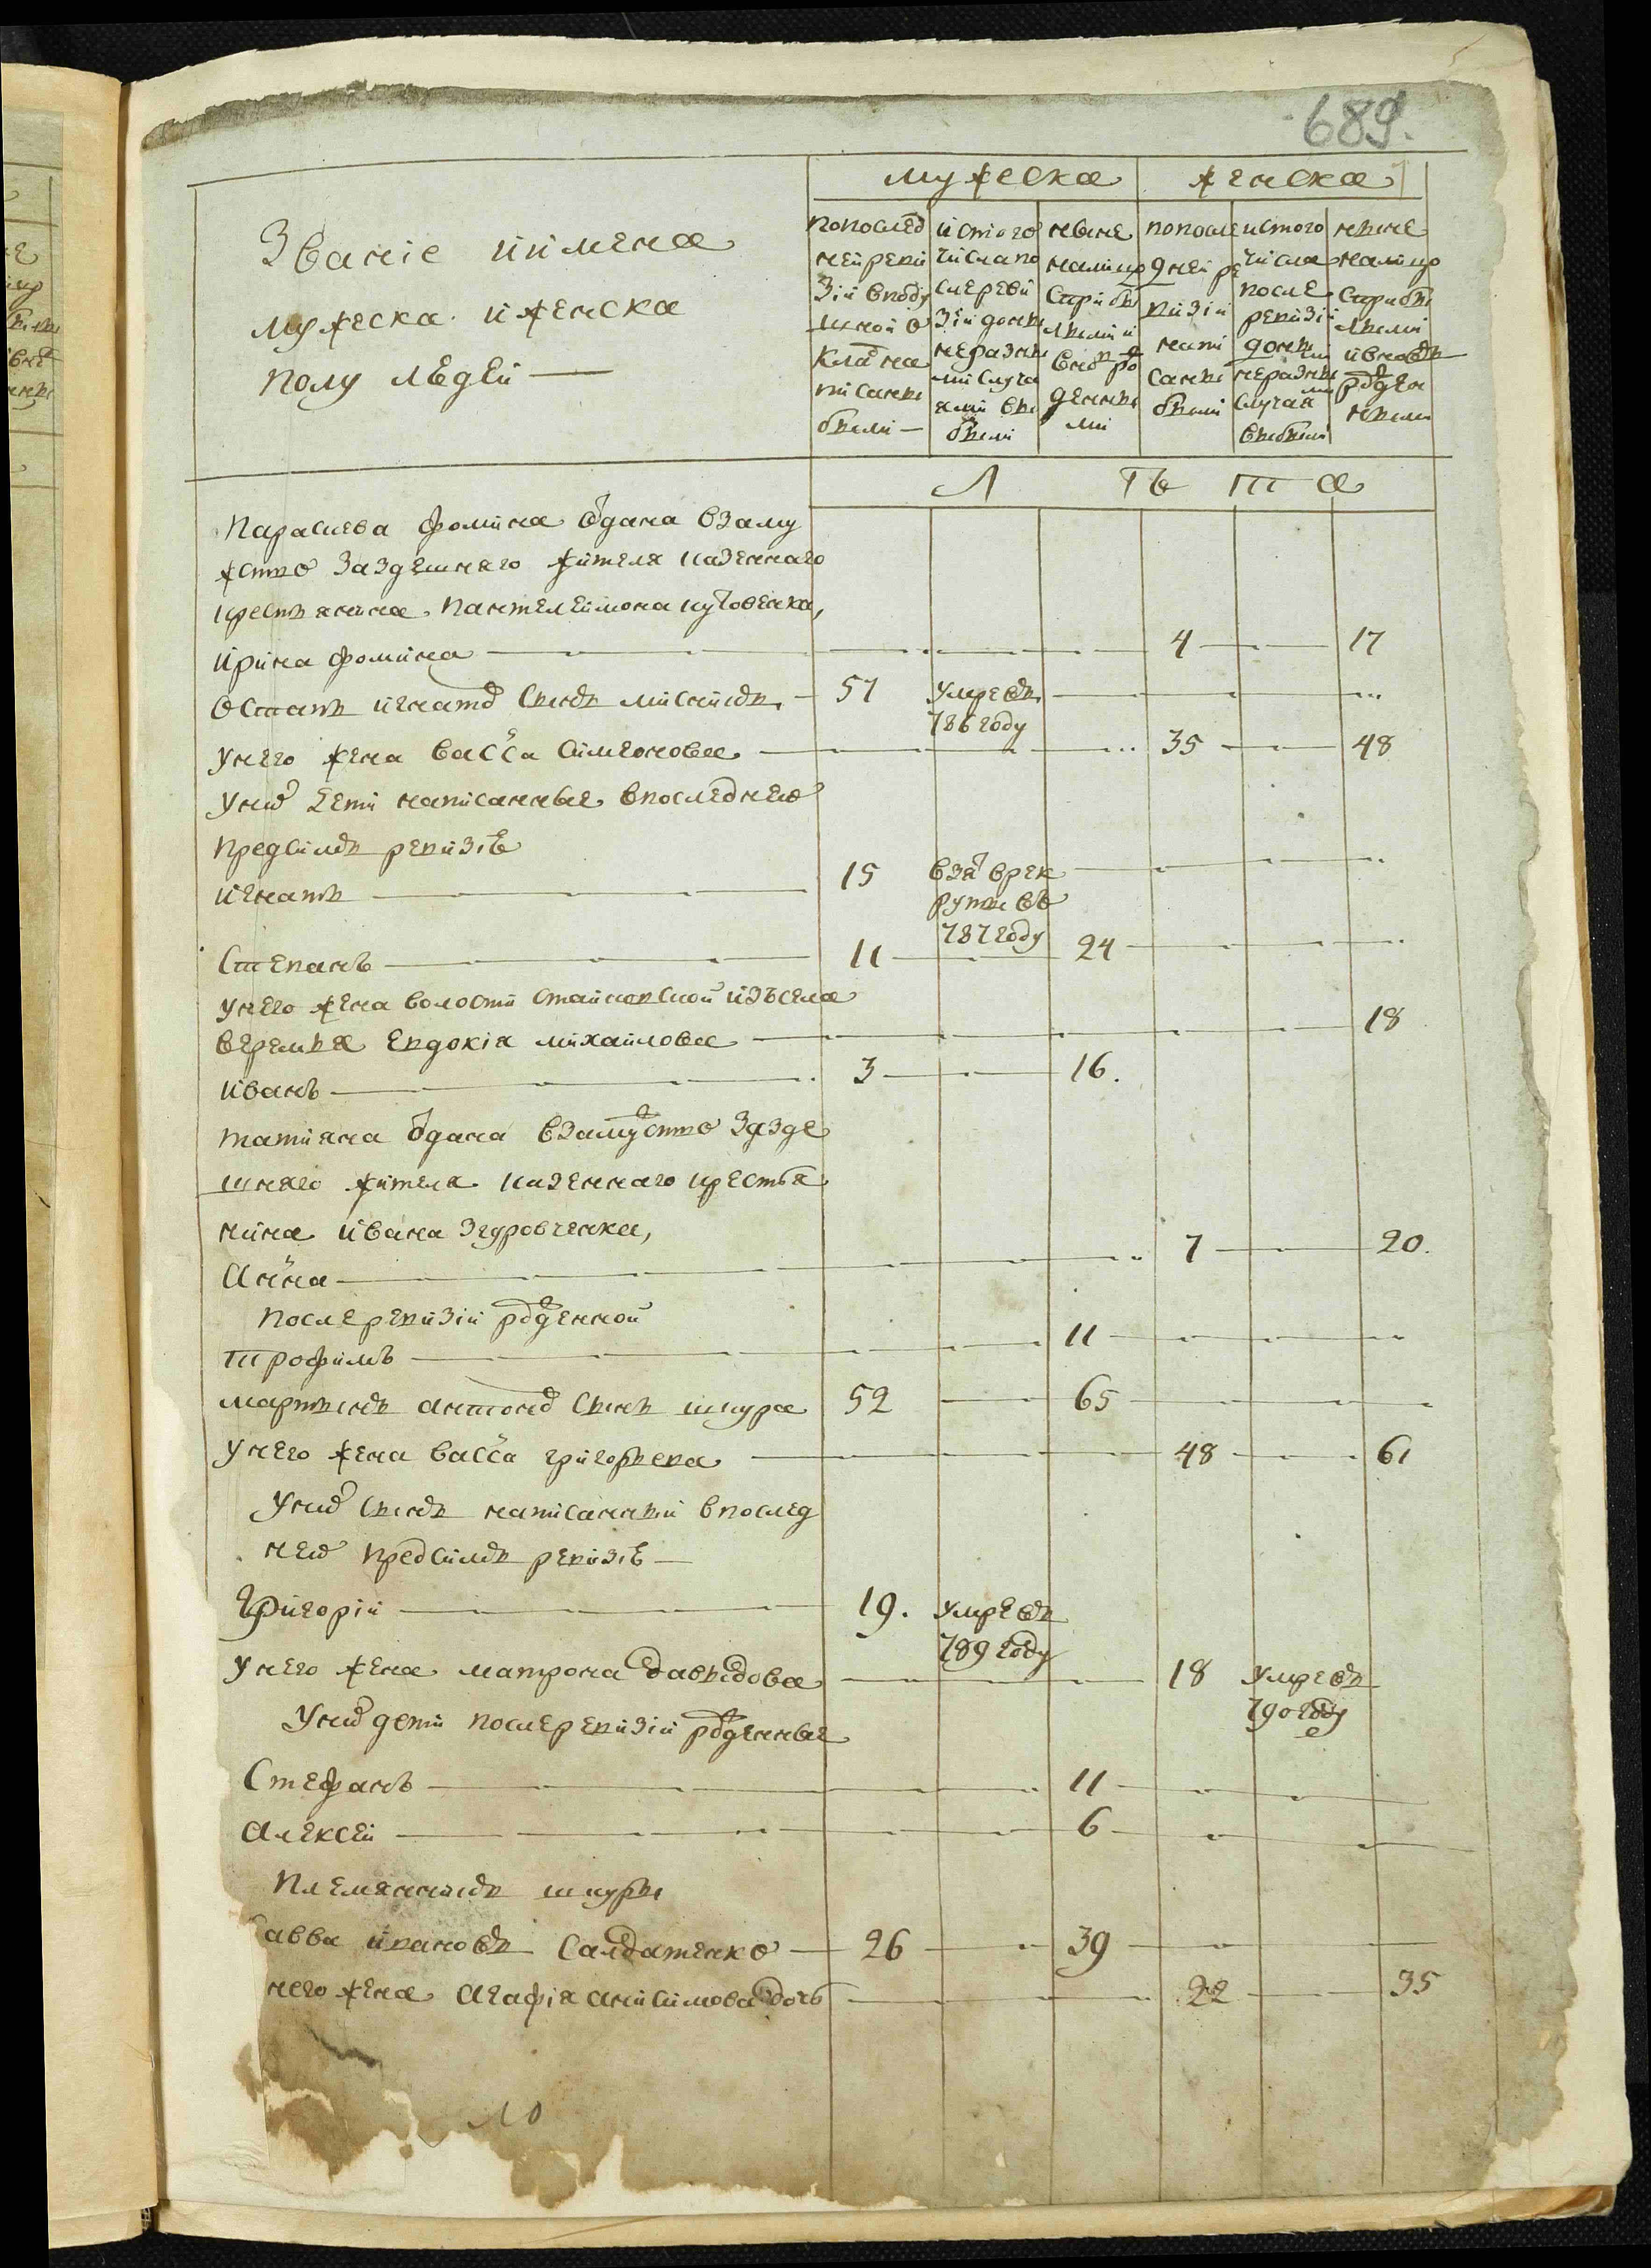 689.
мужеска женска
Званіе и имена
мужеска и женска
полу людей —
попослед
ней реви
зіи вподу
шной о
клад на
писаны
были —
и стого
числа по
сле реви
зіи доны
не разны
ми случа
ями вы
были
ныне
на лицо
с прибы
лыми и
внов ро
жденны
ми
попосле
дней ре
визіи
напи
саны
были
и стого
числа
после
ревизіи
доны
не разны
ми
случая
выбыли
ныне
на лицо
с прибы
лыми
и вновь
рожден
ными
Л Ѣ т а
Парасиева фомина одана взаму
жство за здешнего жителя казенного
крестьянина Пантелеймона куловенка,
Ирина фомина — 4 — 17
Остапъ игнатов сынъ мисникъ — 51 умре въ
786 году
у него жена Васса симеонова — 35 — 48
у них дети написанные в последней
пред симъ ревизіе
Игнатъ — 15 взят в рек
руты въ
787 году
Степанъ — 11 — 24
у него жена волости стайковской изъ села
веремья Евдокія михайлова — 18
Иванъ — 3 — 16.
татияна одана взамужство за зде
шнего жителя казенного крестья
нина Ивана Згуровченка,
Анна — 7 — 20.
После ревизіи рожденной
Трофимъ — 11
Мартынъ антонов сынъ шкура 52 — 65
у него жена Васса григорьева — 48 — 61
у них сынъ написанный в послед
ней пред симъ ревизіе —
Григорій — 19. умре въ
789 году
у него жена матрона давыдова — 18 умре въ
790 году
у них дети после ревизіи рожденные
Стефанъ — 11
Алексей — 6
Племянникъ шкуры
авва ивановъ Салдатенко — 26 — 39
него жена Агафія анисимова дочь — 22 — 35